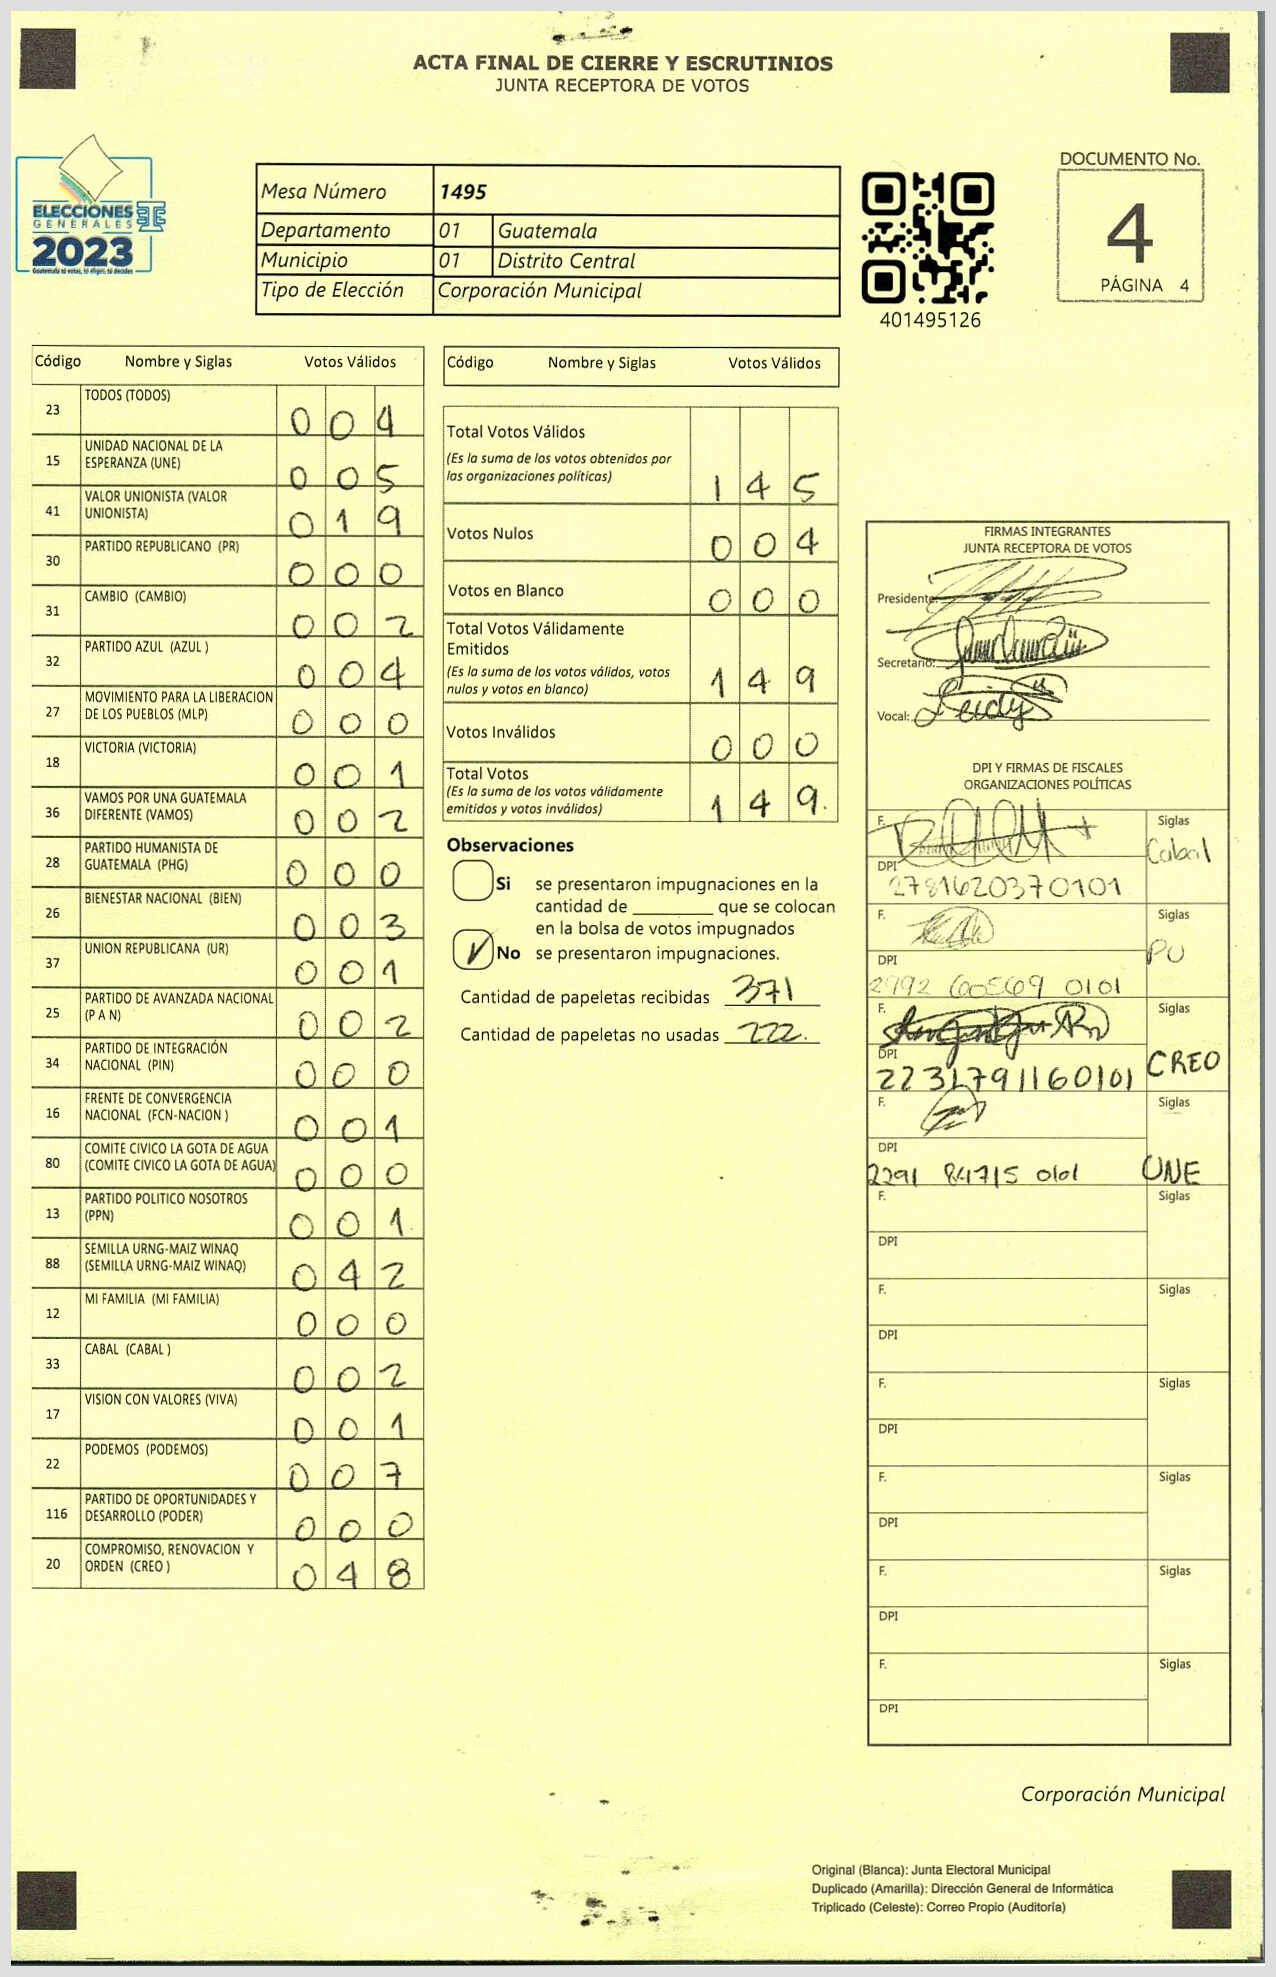 ACTA FINAL DE CIERRE Y ESCRUTINIOS
JUNTA RECEPTORA DE VOTOS
ELECCIONES
GENERALES
2023
Guatemala tú votas, tú eliges, tú decides
Mesa Número 1495
Departamento 01 Guatemala
Municipio 01 Distrito Central
Tipo de Elección Corporación Municipal
401495126
DOCUMENTO No.
4
PÁGINA 4
Código Nombre y Siglas Votos Válidos
23 TODOS (TODOS) 0 0 4
15 UNIDAD NACIONAL DE LA
ESPERANZA (UNE) 0 0 5
41 VALOR UNIONISTA (VALOR
UNIONISTA) 0 1 9
30 PARTIDO REPUBLICANO (PR) 0 0 0
31 CAMBIO (CAMBIO) 0 0 2
32 PARTIDO AZUL (AZUL ) 0 0 4
27 MOVIMIENTO PARA LA LIBERACION
DE LOS PUEBLOS (MLP) 0 0 0
18 VICTORIA (VICTORIA) 0 0 1
36 VAMOS POR UNA GUATEMALA
DIFERENTE (VAMOS) 0 0 2
28 PARTIDO HUMANISTA DE
GUATEMALA (PHG) 0 0 0
26 BIENESTAR NACIONAL (BIEN) 0 0 3
37 UNION REPUBLICANA (UR) 0 0 1
25 PARTIDO DE AVANZADA NACIONAL
(P A N) 0 0 2
34 PARTIDO DE INTEGRACIÓN
NACIONAL (PIN) 0 0 0
16 FRENTE DE CONVERGENCIA
NACIONAL (FCN-NACION ) 0 0 1
80 COMITE CIVICO LA GOTA DE AGUA
(COMITE CIVICO LA GOTA DE AGUA) 0 0 0
13 PARTIDO POLITICO NOSOTROS
(PPN) 0 0 1
88 SEMILLA URNG-MAIZ WINAQ
(SEMILLA URNG-MAIZ WINAQ) 0 4 2
12 MI FAMILIA (MI FAMILIA) 0 0 0
33 CABAL (CABAL ) 0 0 2
17 VISION CON VALORES (VIVA) 0 0 1
22 PODEMOS (PODEMOS) 0 0 7
116 PARTIDO DE OPORTUNIDADES Y
DESARROLLO (PODER) 0 0 0
20 COMPROMISO, RENOVACION Y
ORDEN (CREO ) 0 4 8
Código Nombre y Siglas Votos Válidos
Total Votos Válidos
(Es la suma de los votos obtenidos por
las organizaciones políticas) 1 4 5
Votos Nulos 0 0 4
Votos en Blanco 0 0 0
Total Votos Válidamente
Emitidos
(Es la suma de los votos válidos, votos
nulos y votos en blanco) 1 4 9
Votos Inválidos 0 0 0
Total Votos
(Es la suma de los votos válidamente
emitidos y votos inválidos) 1 4 9.
Observaciones
Si se presentaron impugnaciones en la
cantidad de ________ que se colocan
en la bolsa de votos impugnados
No se presentaron impugnaciones.
Cantidad de papeletas recibidas 371
Cantidad de papeletas no usadas 222.
FIRMAS INTEGRANTES
JUNTA RECEPTORA DE VOTOS
Presidente:
Secretario:
Vocal: Leidy
DPI Y FIRMAS DE FISCALES
ORGANIZACIONES POLÍTICAS
F. Siglas
Cabal
DPI
2781620370101
F. Siglas
PU
DPI
2992 60569 0101
F. Siglas
CREO
DPI
2231791160101
F. Siglas
DPI
2291 84715 0101 UNE
F. Siglas
DPI
F. Siglas
DPI
F. Siglas
DPI
F. Siglas
DPI
F. Siglas
DPI
F. Siglas
DPI
Corporación Municipal
Original (Blanca): Junta Electoral Municipal
Duplicado (Amarilla): Dirección General de Informática
Triplicado (Celeste): Correo Propio (Auditoría)